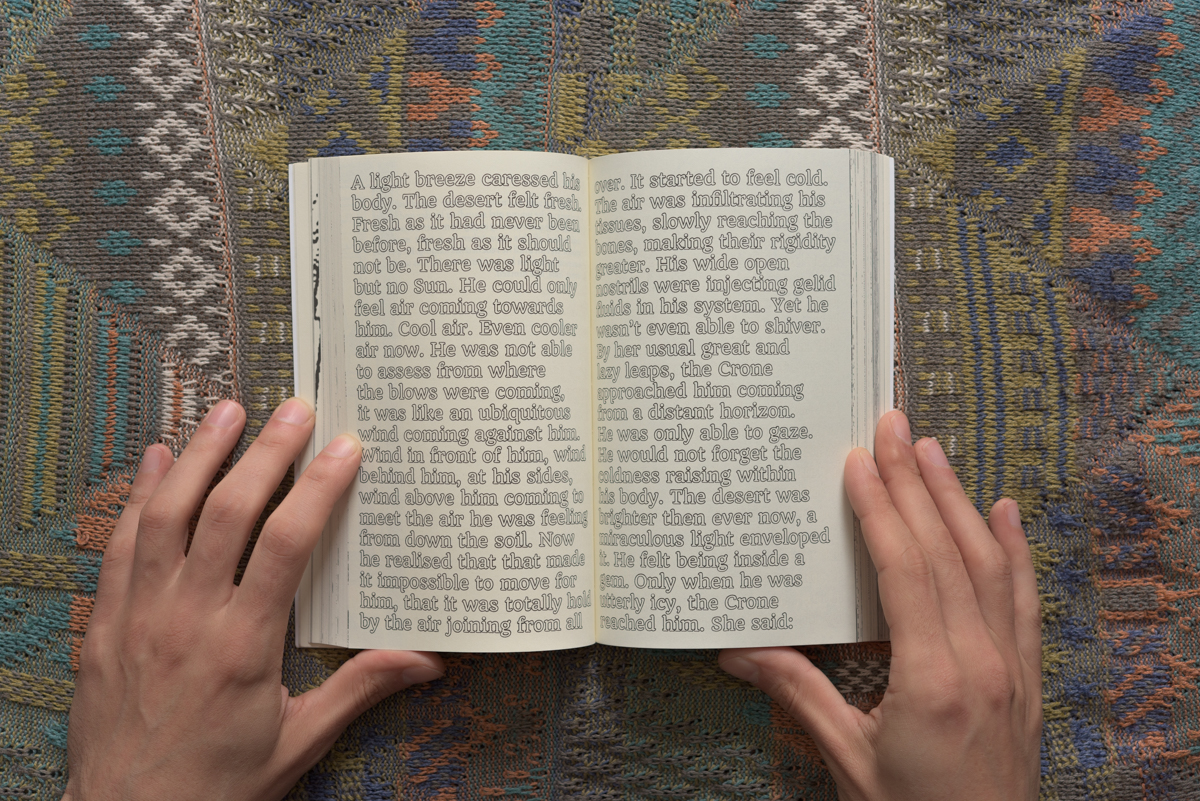 A light breeze caressed his
body. The desert felt fresh.
Fresh as it had never been
before, fresh as it should
not be. There was light
but no Sun. He could only
feel air coming towards
him. Cool air. Even cooler
air now. He was not able
to assess from where
the blows were coming,
it was like an ubiquitous
wind coming against him.
Wind in front of him, wind
behind him, at his sides,
wind above him coming to
meet the air he was feeling
from down the soil. Now
he realised that that made
it impossible to move for
him, that it was totally hold
by the air joining from all
over. It started to feel cold.
The air was infiltrating his
tissues, slowly reaching the
bones, making their rigidity
greater. His wide open
nostrils were injecting gelid
fluids in his system. Yet he
wasn't even able to shiver.
By her usual great and
lazy leaps, the Crone
approached him coming
from a distant horizon.
He was only able to gaze.
He would not forget the
coldness raising within
his body. The desert was
brighter then ever now, a
miraculous light enveloped
it. He felt being inside a
gem. Only when he was
utterly icy, the Crone
reached him. She said: